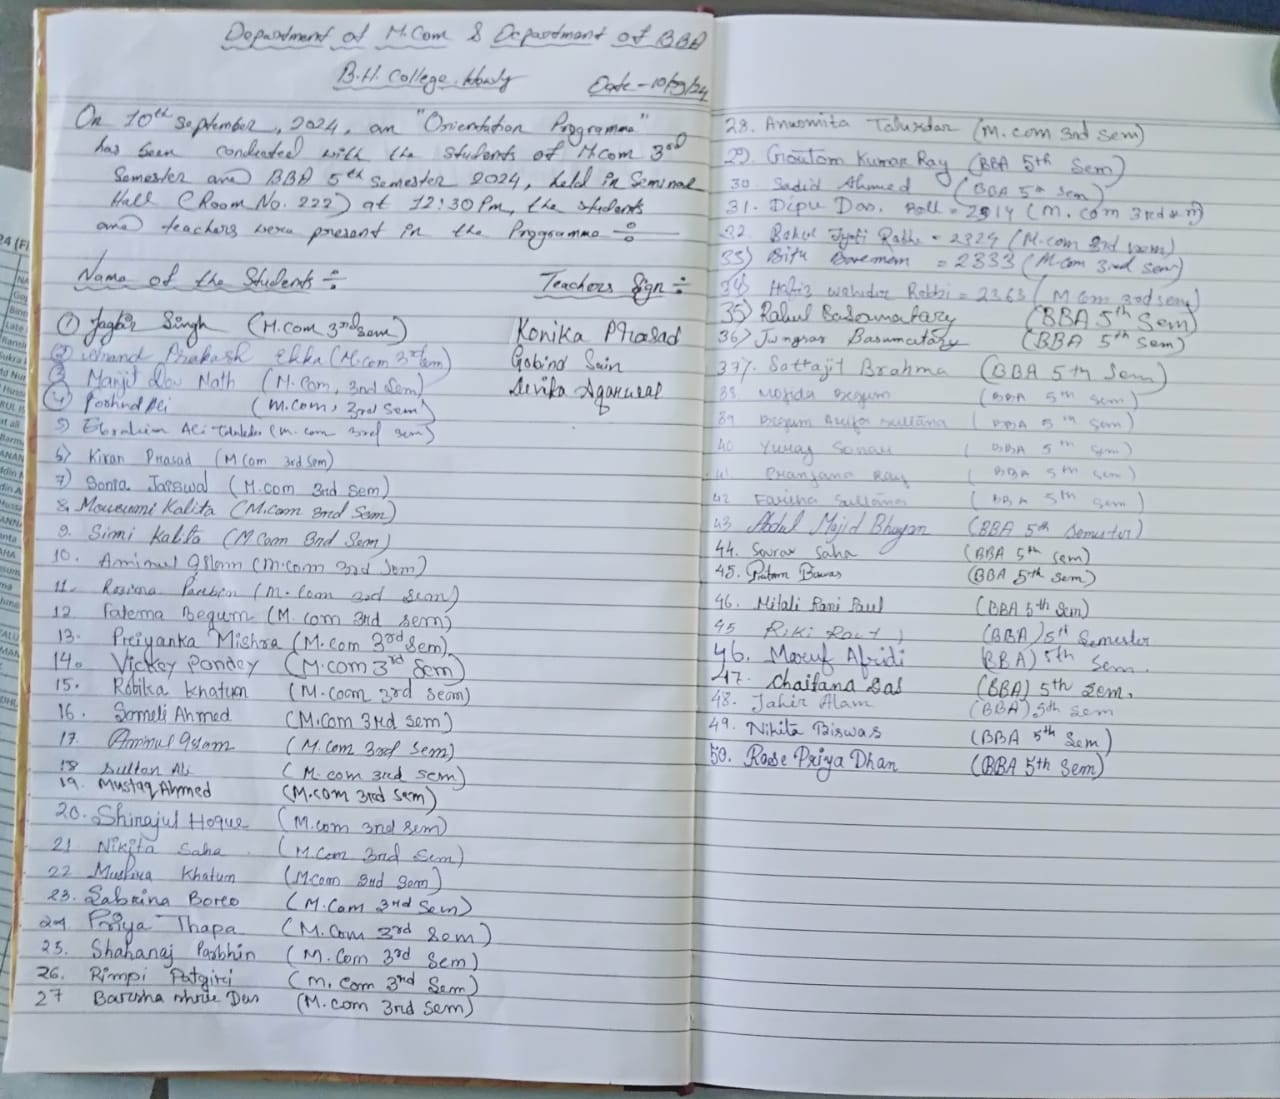 Department of M.Com & Department of BBA
B.H. College, Howly
Date - 10/09/24
On 10th September, 2024, an "Orientation Programme"
has been conducted with the students of M.Com 3rd
Semester and BBA 5th Semester 2024, held in Seminar
Hall (Room No. 222) at 12:30 Pm, the students
and teachers were present in the Programme ÷
Name of the Students ÷
Teachers Sign ÷
① Jagbir Singh (M.Com 3rd sem)
Konika Prasad
② Anand Prakash Ekka (M.com 3rd sem)
Gobind Sain
③ Manjit Dev Nath (M.Com, 3nd Sem)
Devika Agarwal
④ Ali (M.com, 3rd sem)
5) Ebrahim Ali (M.com 3rd sem)
6) Kiran Prasad (M Com 3rd Sem)
7) Sonia Jaiswal (M.com 3nd Sem)
8. Mousumi Kalita (M.com 3nd Sem)
9. Simi Kalita (M.Com 3nd Sem)
10. Aminul Islam (M.com 3rd Sem)
11. Rosima Parbin (M.Com 3rd sem)
12. Fatema Begum (M.com 3rd sem)
13. Preiyanka Mishra (M.com 3rd sem)
14. Vickey Pandey (M.com 3rd Sem)
15. Robika Khatun (M.com 3rd seam)
16. Someli Ahmed (M.com 3rd sem)
17. Aminul Islam (M.Com 3rd Sem)
18 Sultan Ali (M.com 3rd sem)
19. Mustaq Ahmed (M.com 3rd sem)
20. Shirajul Hoque (M.com 3nd sem)
21 Nikita Saha (M.Com 3nd Sem)
22 Khatun (M.com 3nd Sem)
23. Sabrina Boreo (M.Com 3rd Sem)
24. Priya Thapa (M.Com 3rd Sem)
25. Shahanaj Parbhin (M.Com 3rd Sem)
26. Rimpi Patgiri (M.Com 3rd Sem)
27 Barsha Das (M.com 3nd Sem)
28. Anusmita Talukdar (M.com 3rd sem)
29. Goutom Kumar Ray (BBA 5th Sem)
30. Sadid Ahmed (BBA 5th Sem)
31. Dipu Das. Roll = 2314 (M.com 3rd sem)
32. Jyoti = 2324 (M.com 3rd sem)
33) Bitu Boremon = 2333 (M.com 3rd sem)
34) Hafiz Wahidur Robbi = 2363 (M Com 3rd sem)
35) Rahul Basumatary (BBA 5th Sem)
36) Jungsar Basumatary (BBA 5th Sem)
37. Sattajit Brahma (BBA 5th Sem)
38 Mojida Begum (BBA 5th sem)
39 Begum Sultana (BBA 5th sem)
40 Yuvraj Sonar (BBA 5th sem)
41 Ray (BBA 5th sem)
42 Farina Sultana (BBA 5th sem)
43 Abdul Majid Bhuyan (BBA 5th semester)
44. Sourav Saha (BBA 5th sem)
45. Pritam Biswas (BBA 5th sem)
46. Mitali Rani Paul (BBA 5th Sem)
45 Riki (BBA) 5th Semester
46. Maruf Afridi (BBA) 5th Sem.
47. Chaitana Das (BBA) 5th Sem.
48. Jahir Alam (BBA) 5th sem
49. Nikita Biswas (BBA 5th Sem)
50. Rose Priya Dhan (BBA 5th Sem)